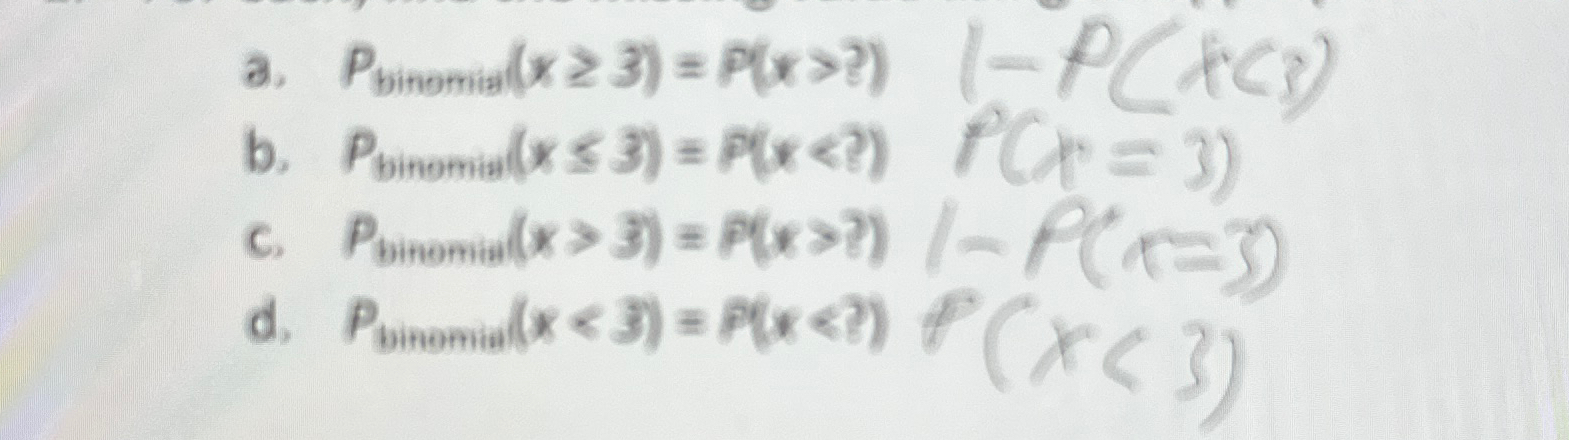 a. Pbinomial(x ≥ 3) = P(x >?) 1 - P(x<3)
b. Pbinomial(x ≤ 3) = P(x <?) P(x = 3)
c. Pbinomial(x > 3) = P(x >?) 1 - P(x=3)
d. Pbinomial(x < 3) = P(x <?) P(x < 3)